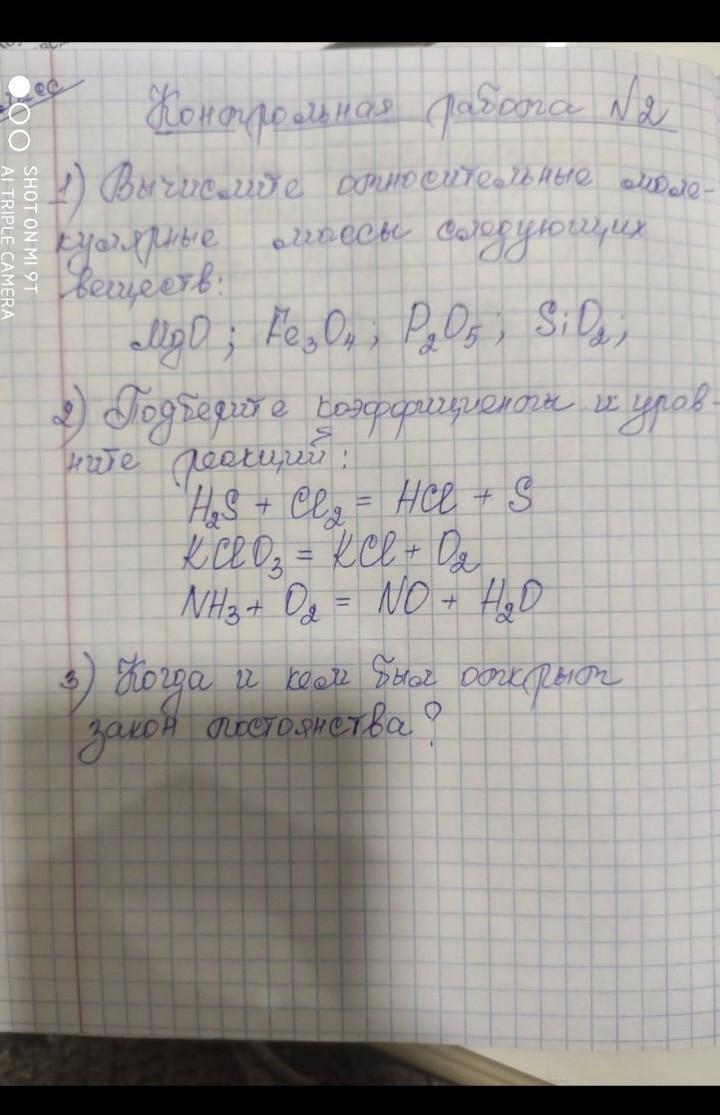 Контрольная работа N2
1) Вычислите относительные моле-
кулярные массы следующих
веществ:
MgO; Fe₃O₄; P₂O₅; SiO₂;
2) Подберите коэффициенты и урав-
ните реакций:
H₂S + Cl₂ = HCl + S
KClO₃ = KCl + O₂
NH₃ + O₂ = NO + H₂O
3) Когда и кем был открыт
закон постоянства?
SHOT ON MI 9T
AI TRIPLE CAMERA